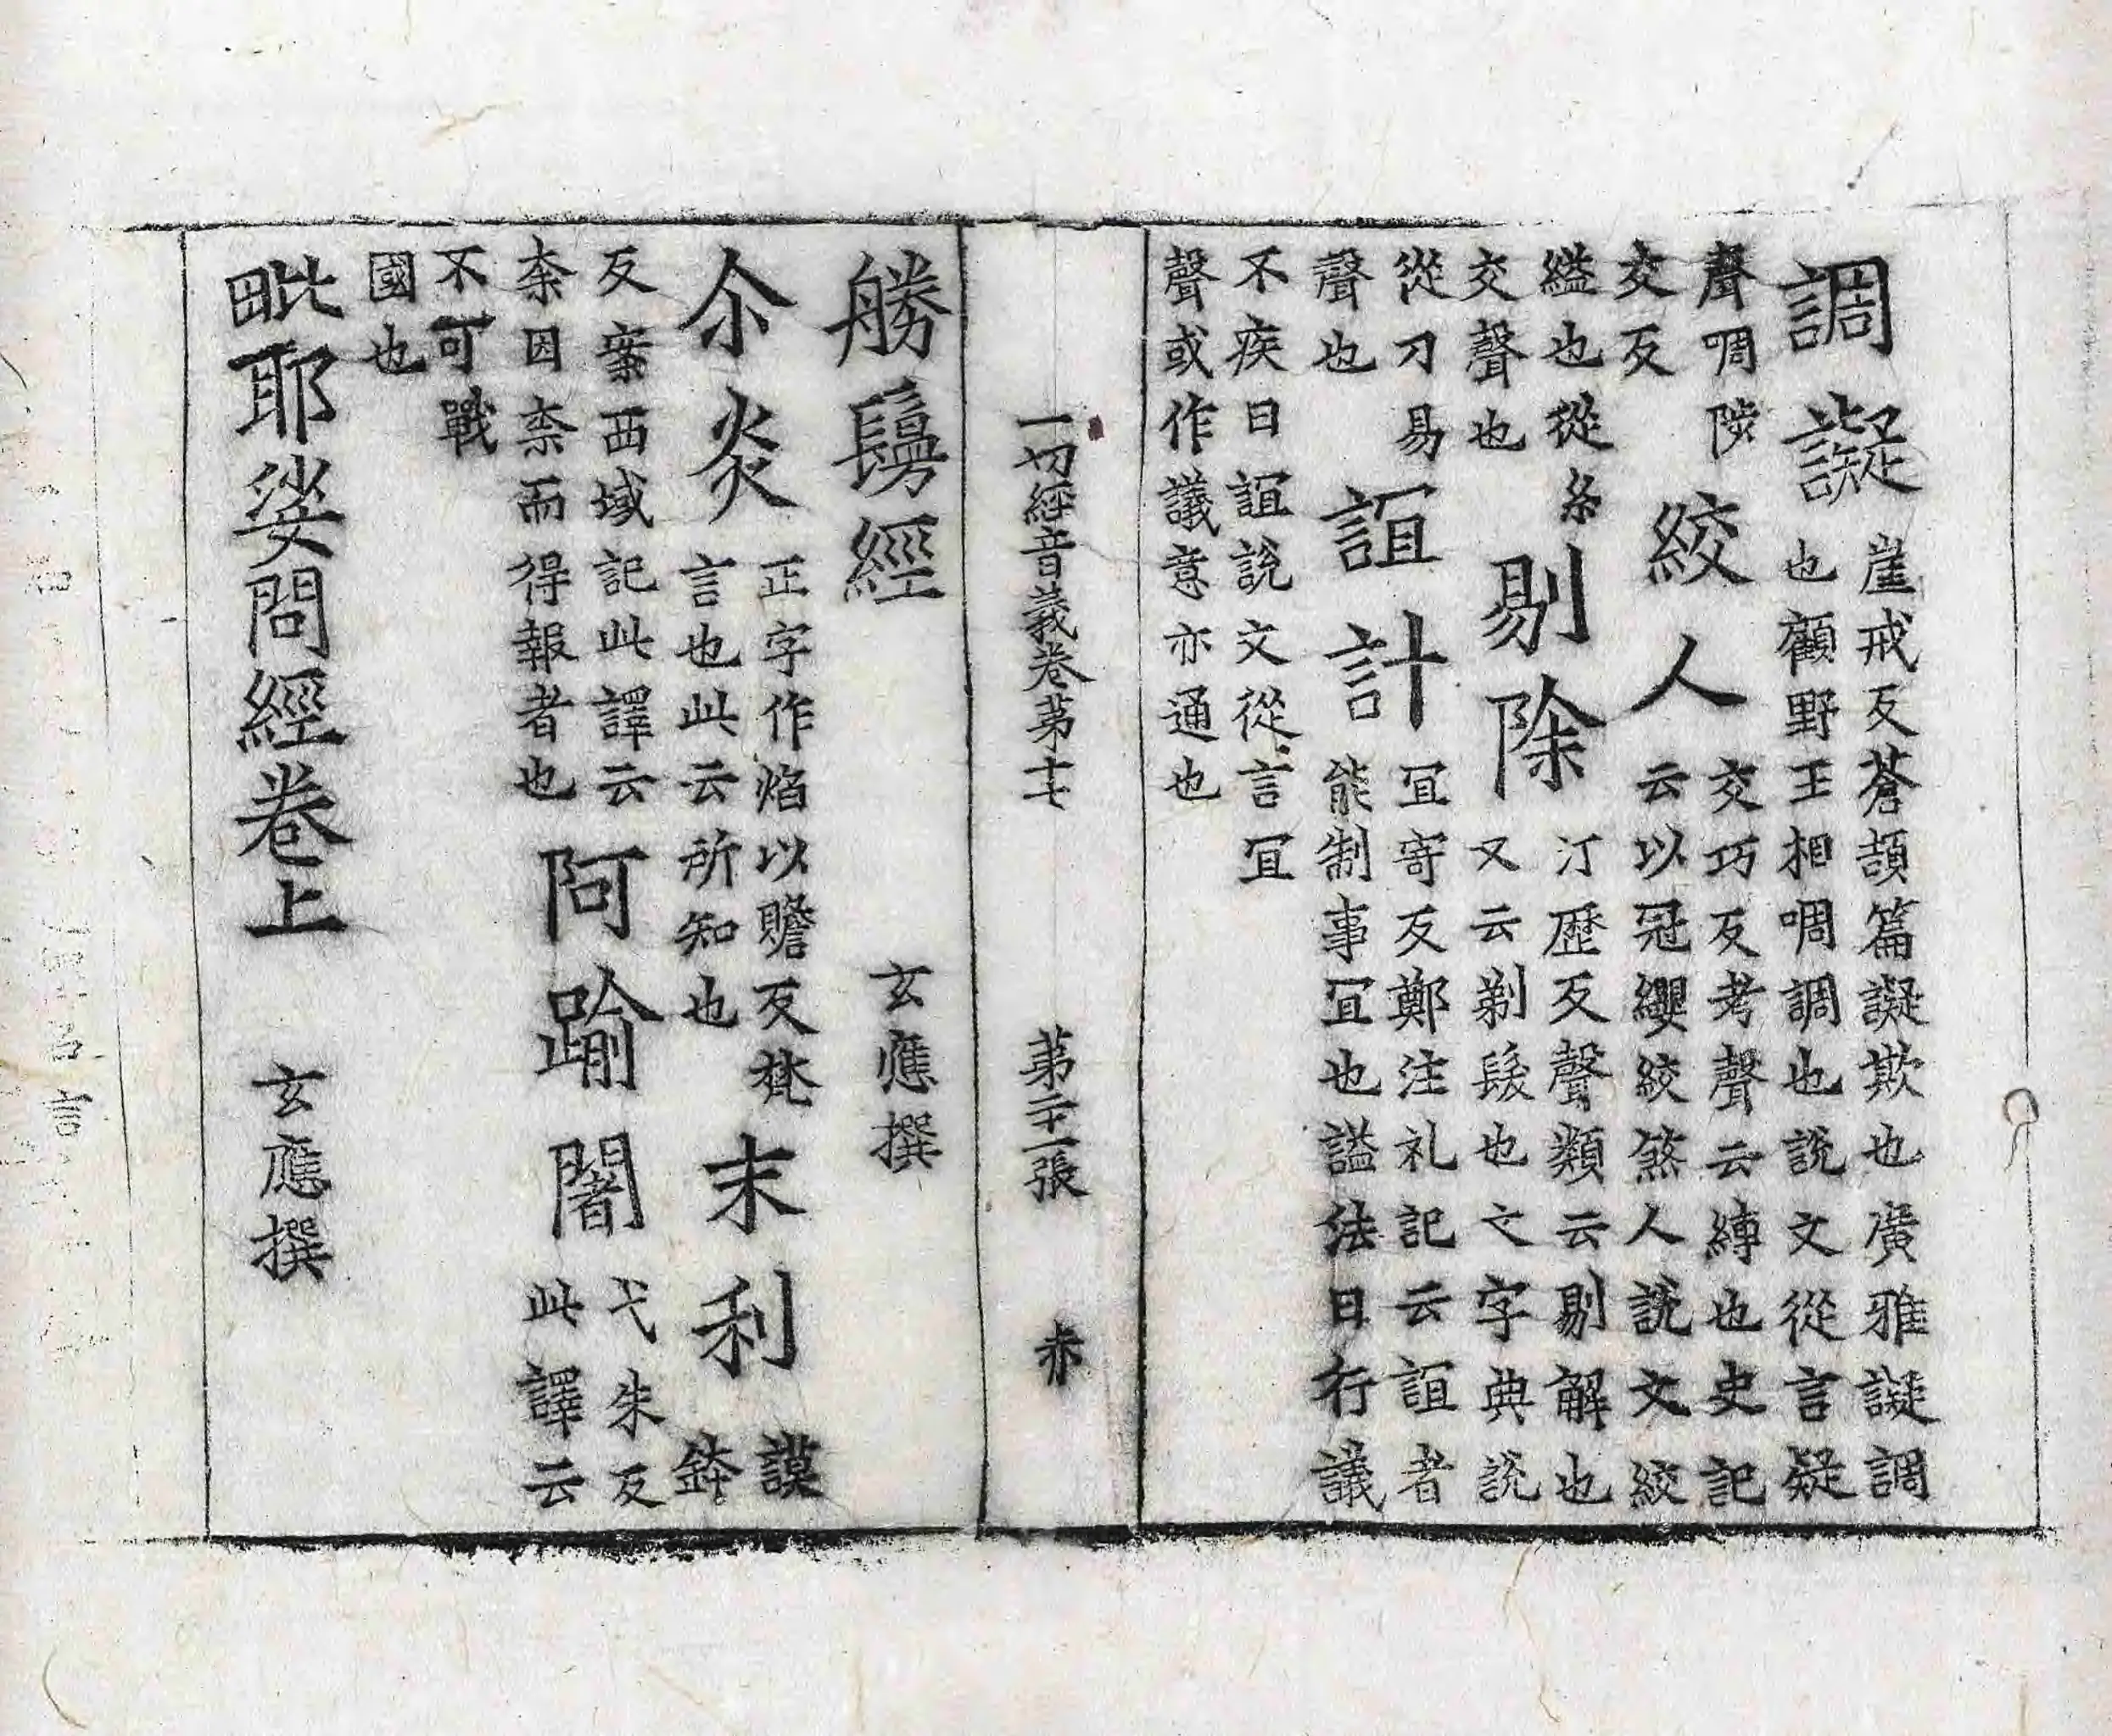 調譺崖戒反蒼頡篇譺欺也廣雅譺調
也顧野王相啁調也說文從言疑
聲啁陟
交反
絞人交巧反考聲云縛也史記
云以冠纓絞煞人說文絞
縊也從糸
交聲也
剔除汀歷反聲類云剔解也
又云剃髮也文字典說
從刀易
聲也
誼計冝寄反鄭注礼記云誼者
能制事冝也謚法曰行議
不疾曰誼說文從言冝
聲或作議意亦通也
一切經音義卷第十七 第二十一張 赤
勝鬘經 玄應撰
尒炎正字作焰以贍反梵
言也此云所知也
末利謨
鉢
反案西域記此譯云
柰因柰而得報者也
阿踰闍弋朱反
此譯云
不可戰
國也
毗耶娑問經卷上 玄應撰